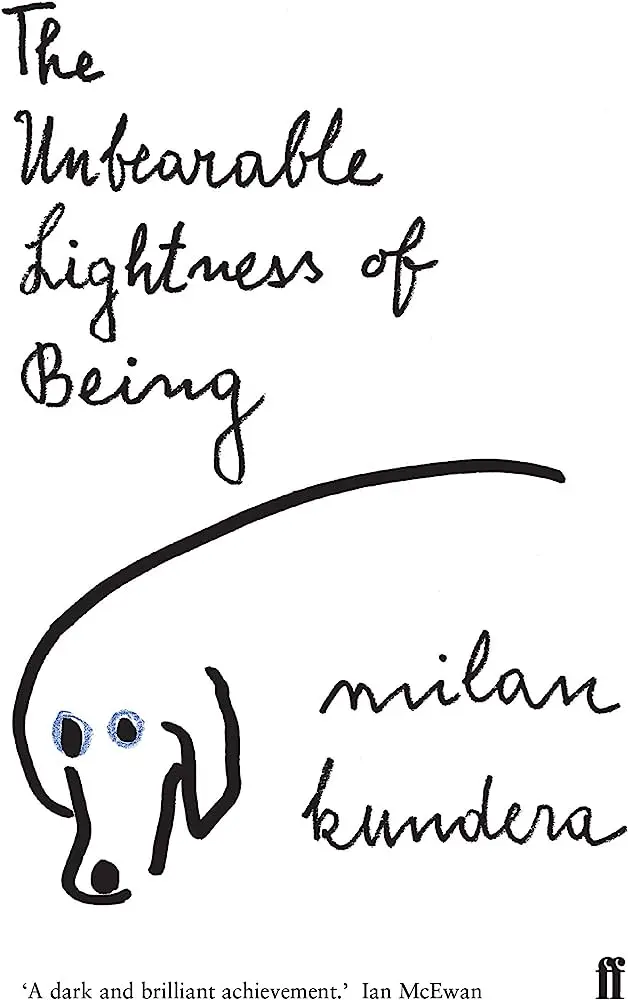 The
Unbearable
Lightness of
Being
milan
kundera
'A dark and brilliant achievement.' Ian McEwan
ff